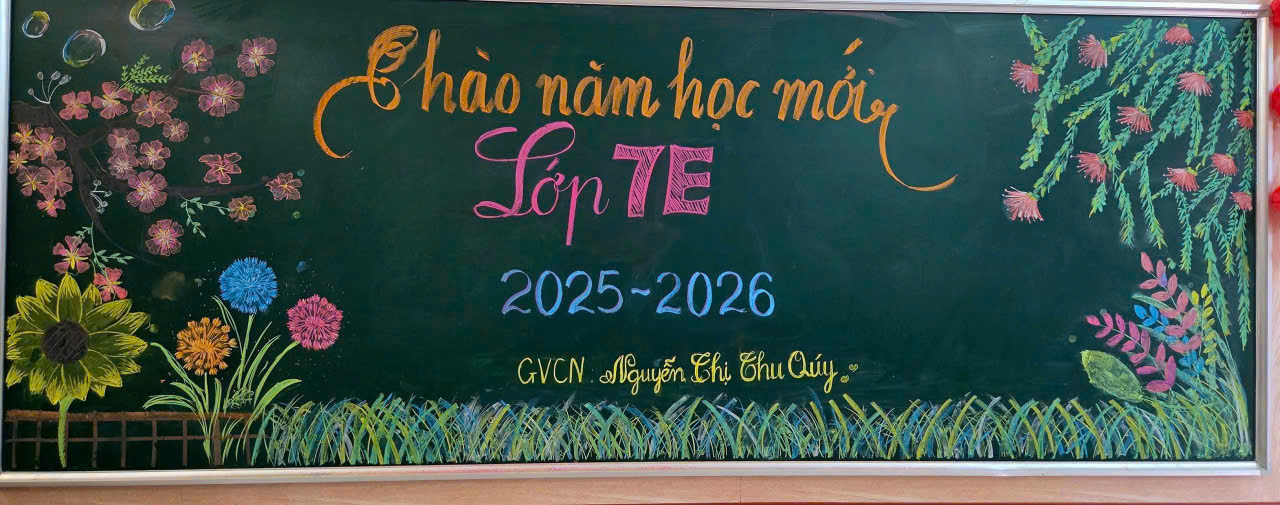 Chào năm học mới
Lớp 7E
2025-2026
GVCN. Nguyễn Thị Thu Qúy